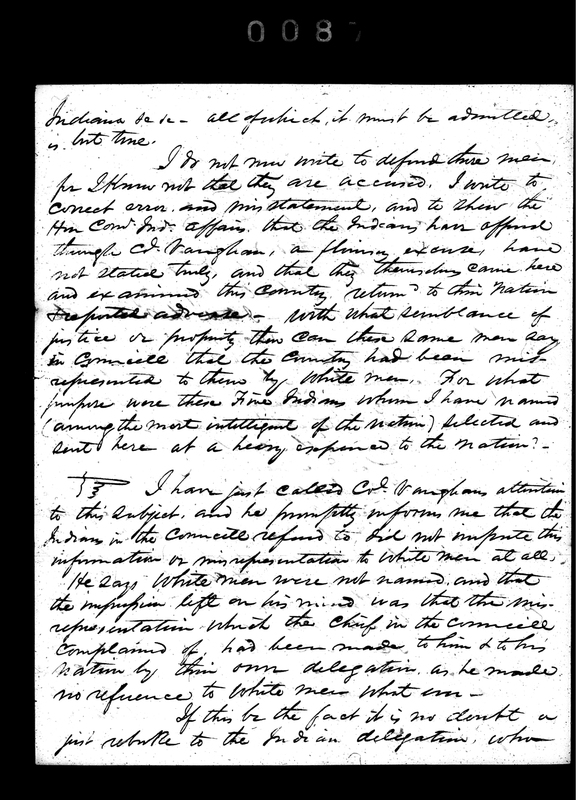 0087
Indiana &c &c - all of which, it must be admitted,
is but true.
I do not now write to defend these men,
for I know not that they are accused. I write to
correct error, and misstatement, and to shew the
Hon Com. Ind. Affairs, that the Indians have offered
through Col. Vaughan, a flimsy excuse, have
not stated truly, and that they themselves came here
and examined this Country, return'd to their Nation
& reported adverse - With what semblance of
justice or propriety then can these same men say
in Councill that the Country had been mis-
represented to them by White men. For what
purpose were these Five Indians whom I have named
(among the most intelligent of the Nation) selected and
sent here at a heavy expence to the Nation? -
I have just called Col. Vaughans attention
to this subject, and he promptly informs me that the
Indians in the Councill refered to did not impute this
information or misrepresentation to White men at all.
He says White men were not named, and that
the impression left on his mind was that the mis-
representation which the Chief in the Councill
complained of, had been made to him & to his
Nation by their own delegation, as he made
no reference to White men what ever -
If this be the fact it is no doubt a
just rebuke to the Indian delegation, who